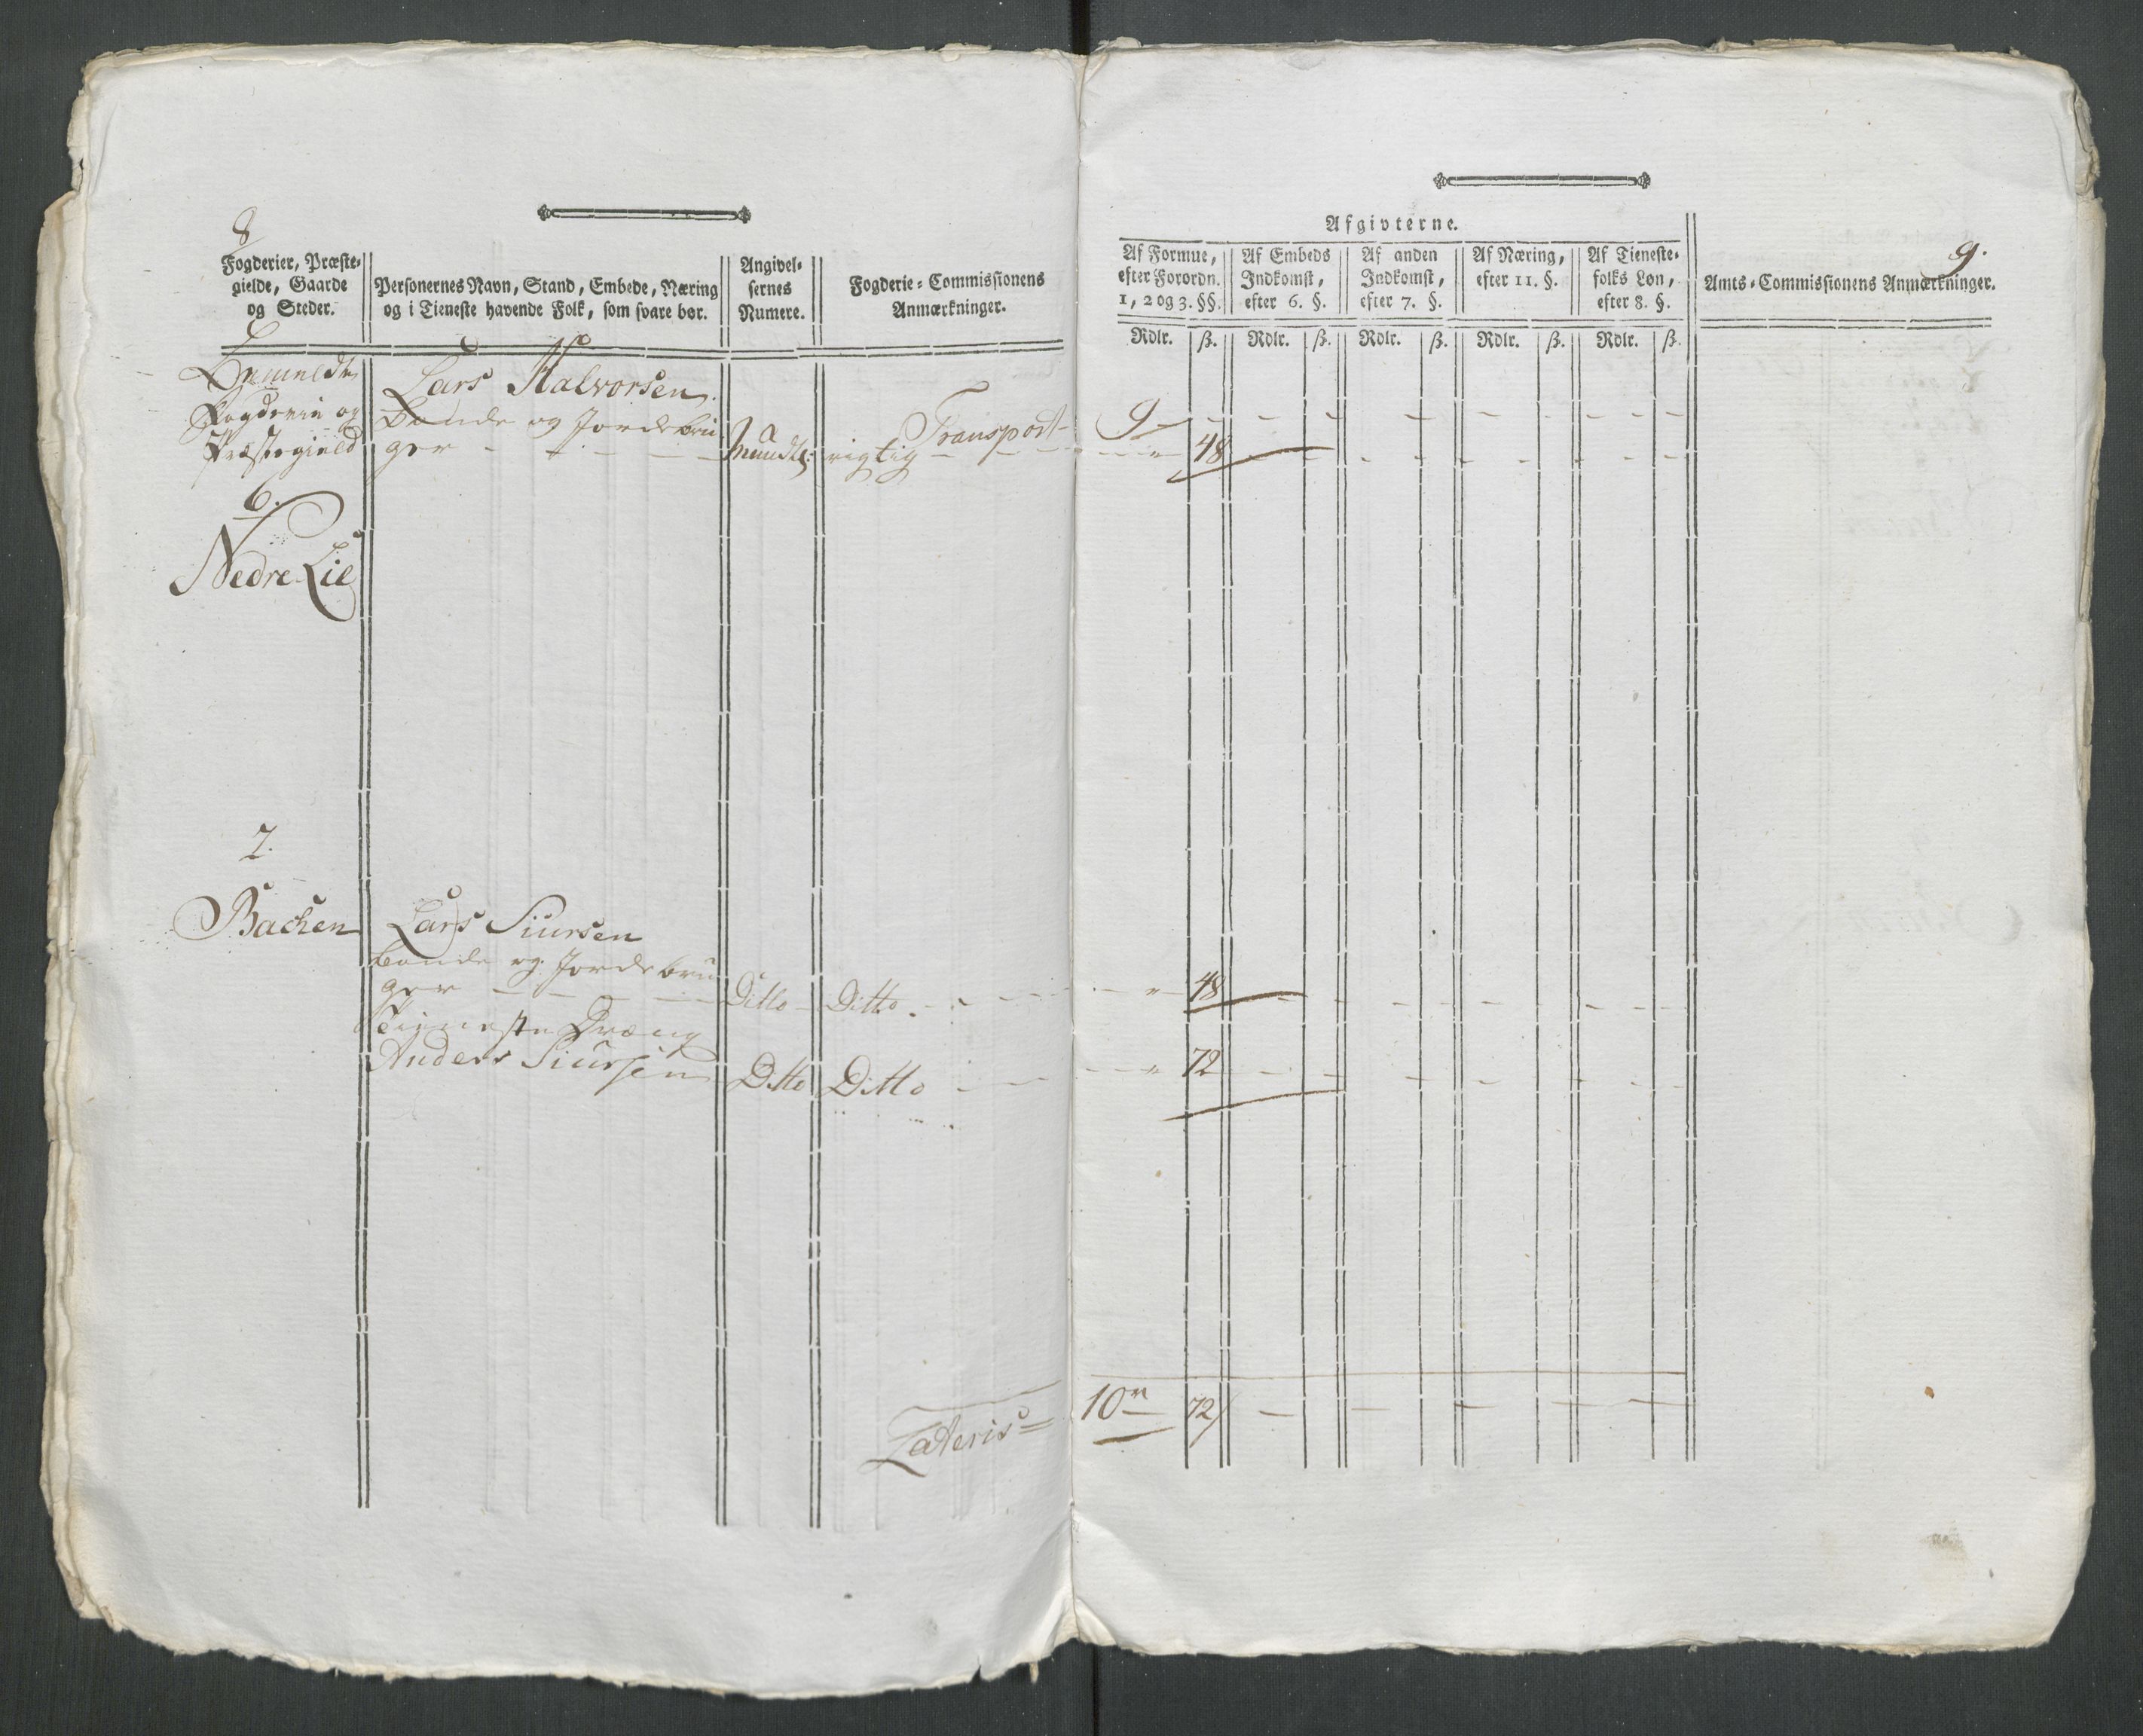 8
Fogderier, Præste-
gielde, Gaarde
og Steder.
Personernes Navn, Stand, Embede, Næring
og i Tieneste havende Folk, som svare bør.
Angivel-
sernes
Numere.
Fogderie-Commissionens
Anmærkninger.
Fogderie og
Præstegield
Lars Halvorsen
Bonde og Jordebru
ger
Mundtl:
rigtig
Transport
6.
Nedre Lie
7.
Bachen
Lars Siursen
bonde og Jordebru
ger
Ditto
Ditto
Tieneste Dreng
Anders Siursen
Ditto
Ditto
Lateris
9.
Afgivterne.
Af Formue,
efter Forordn.
1, 2 og 3. §§.
Af Embeds
Indkomst,
efter 6. §.
Af anden
Indkomst,
efter 7. §.
Af Næring,
efter 11. §.
Af Tieneste-
folks Løn,
efter 8. §.
Amts-Commissionens Anmærkninger.
Rdlr. ß. Rdlr. ß. Rdlr. ß. Rdlr. ß. Rdlr. ß.
9
48
48
72
10 72